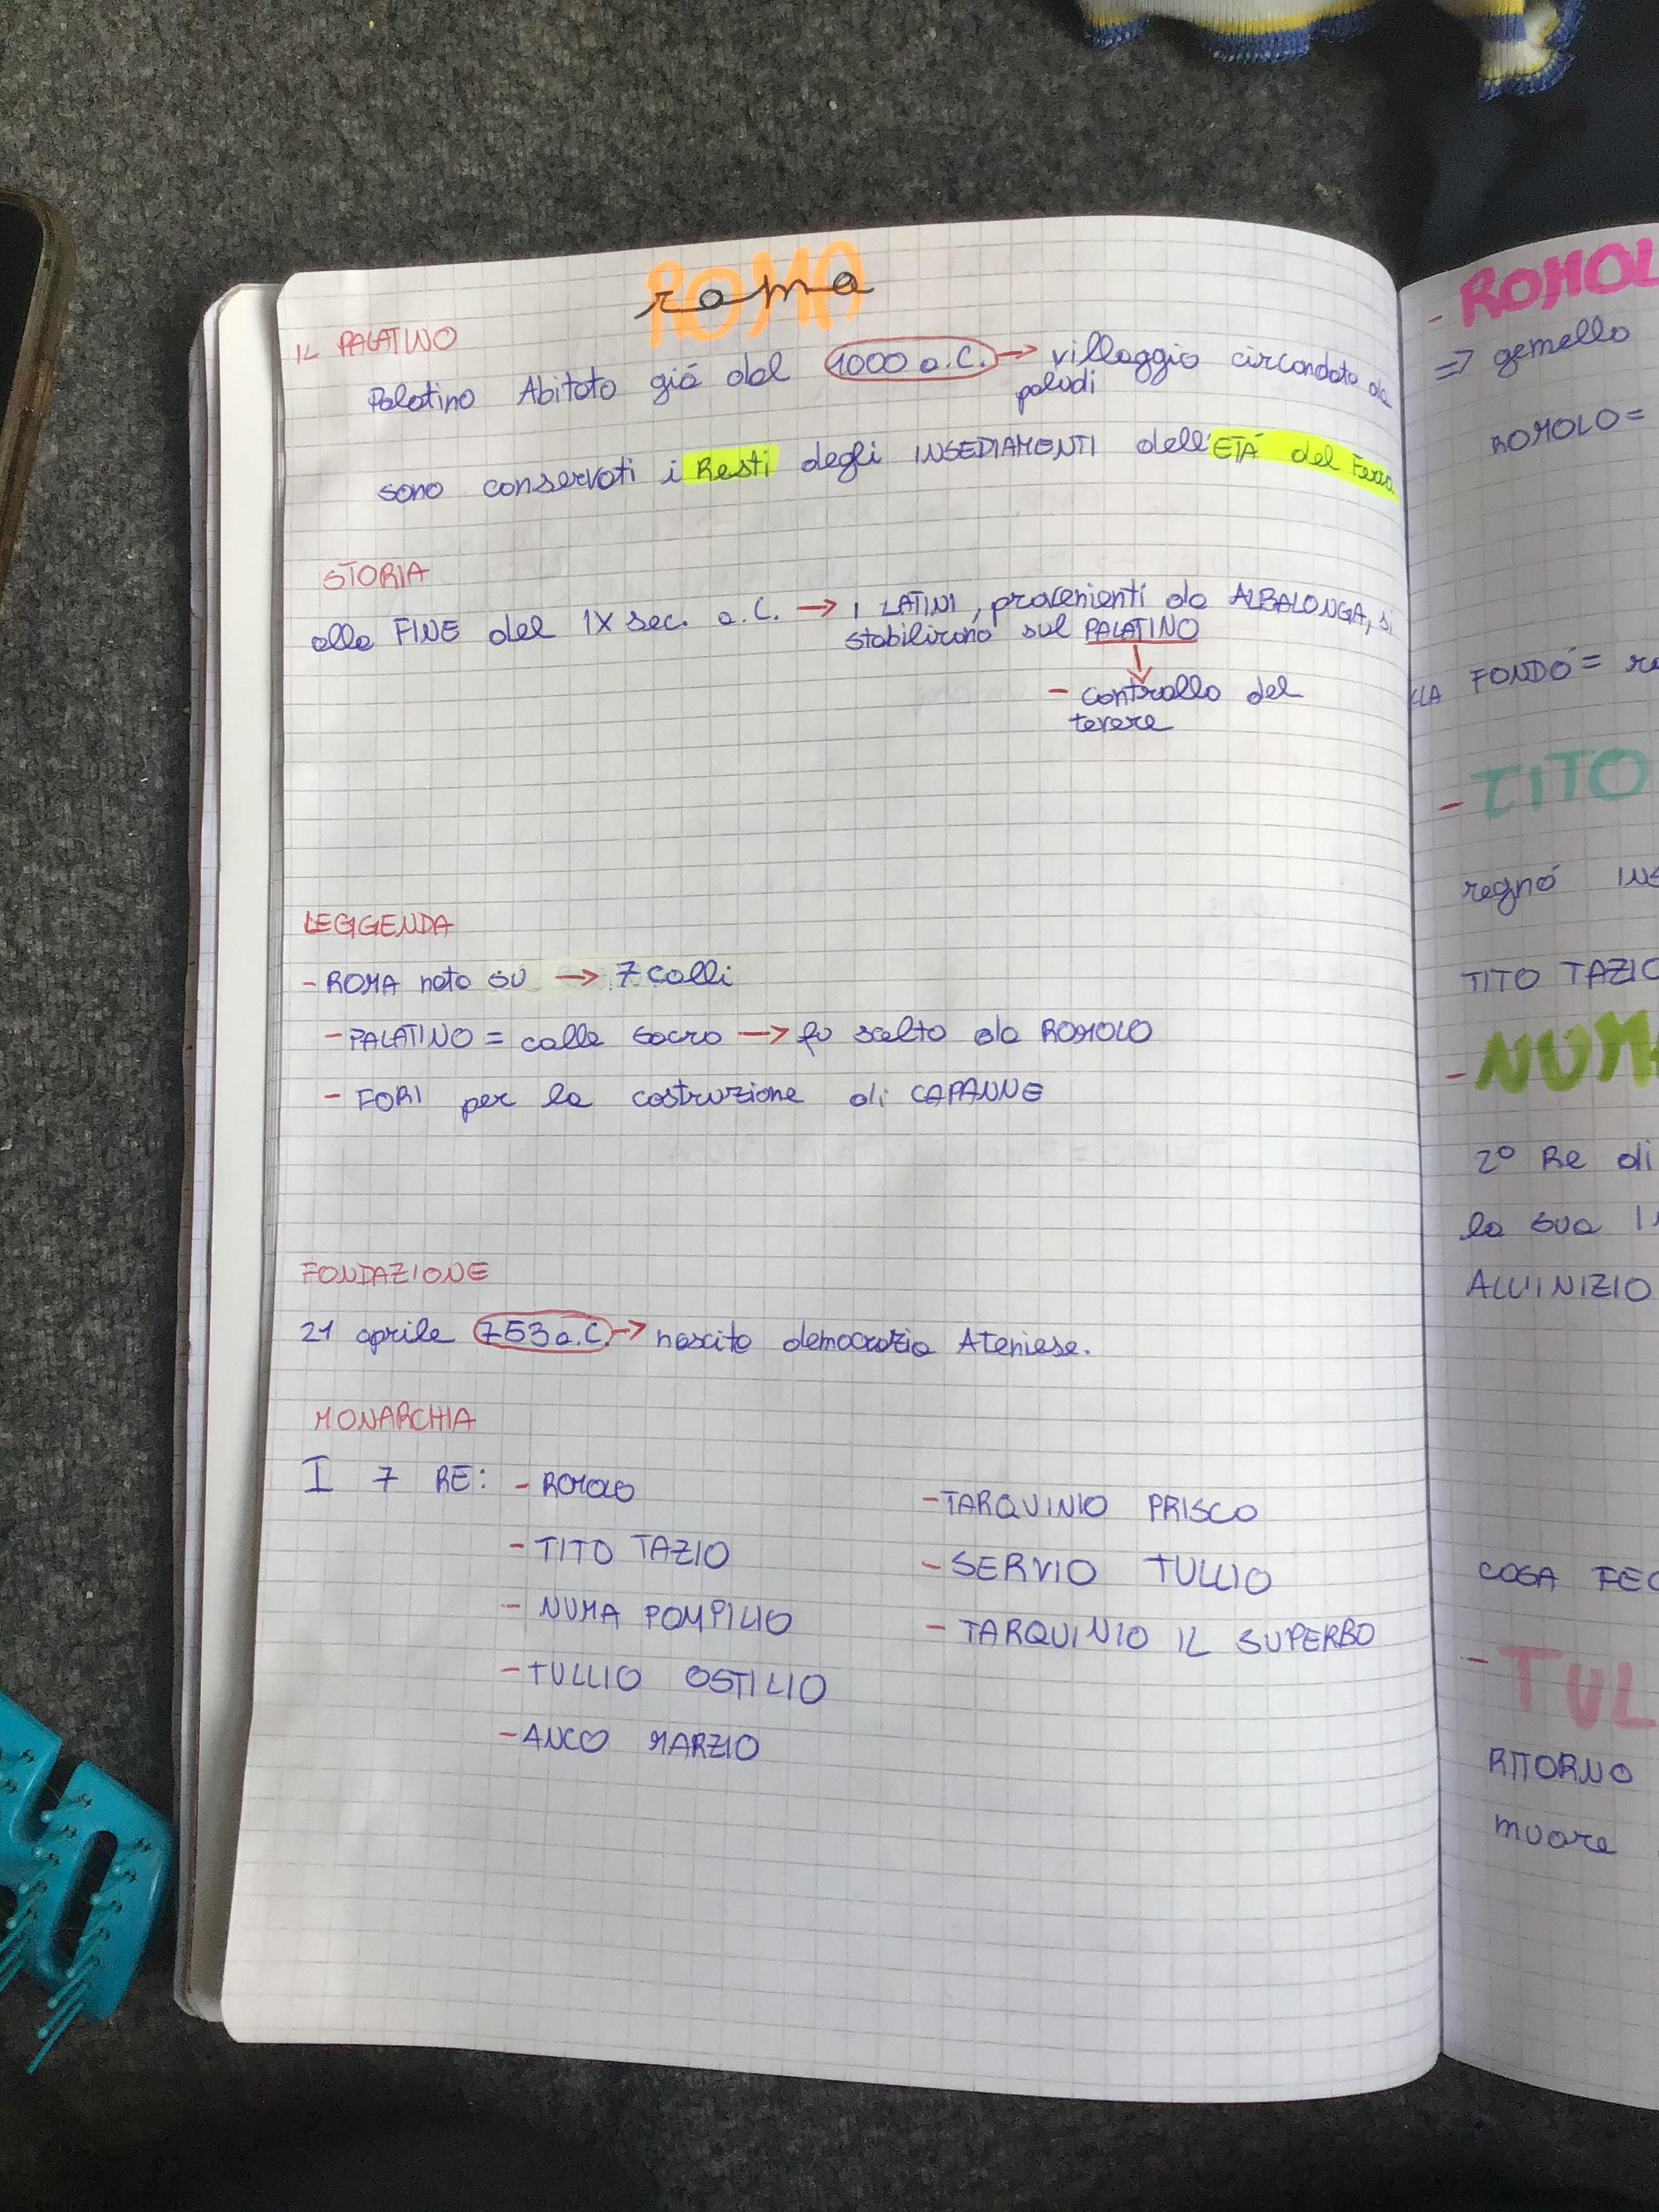 ROMA
roma
IL PALATINO
Palatino Abitato giá dal 1000 a.C. → villaggio circondato da
paludi
sono conservati i Resti degli INSEDIAMENTI dell'ETÁ del Ferro.
STORIA
alla FINE del IX sec. a.C. → I LATINI, provenienti da ALBALONGA, si
stabilirono sul PALATINO
- controllo del
tevere
LEGGENDA
- ROMA nata su → 7 colli
- PALATINO = colle sacro → fu scelto da ROMOLO
- FORI per la costruzione di CAPANNE
FONDAZIONE
21 aprile 753 a.C. → nascita democrazia Ateniese.
MONARCHIA
I 7 RE: - ROMOLO
- TITO TAZIO
- NUMA POMPILIO
- TULLIO OSTILIO
- ANCO MARZIO
- TARQUINIO PRISCO
- SERVIO TULLIO
- TARQUINIO IL SUPERBO
- ROMOL
=> gemello
ROMOLO =
LLA FONDÓ =
- TITO
regnó
TITO TAZIO
- NUMA
2° Re di
la sua
ALL'INIZIO
COSA FEC
- TUL
RITORNO
muore